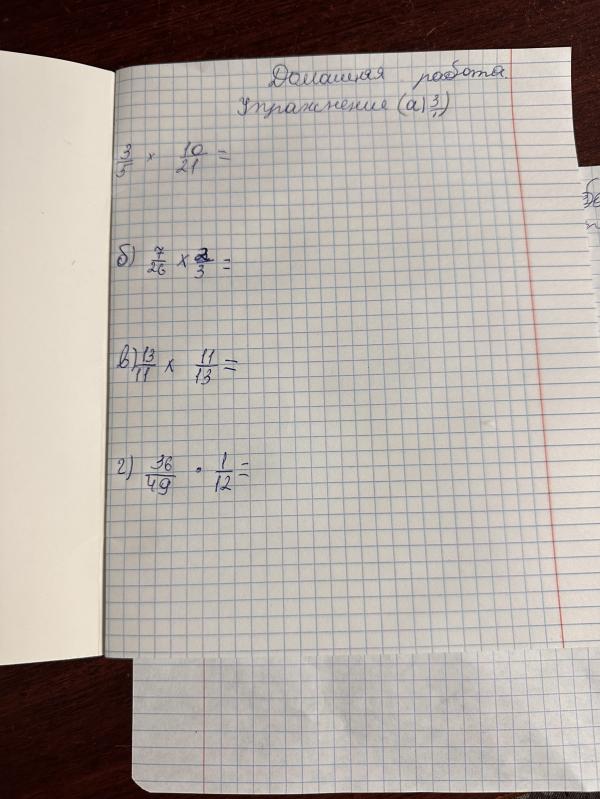 Домашняя работа.
Упражнение (а) 3/1)
3/5 × 10/21 =
б) 7/26 × 2/3 =
в) 13/11 × 11/13 =
г) 36/49 · 1/12 =